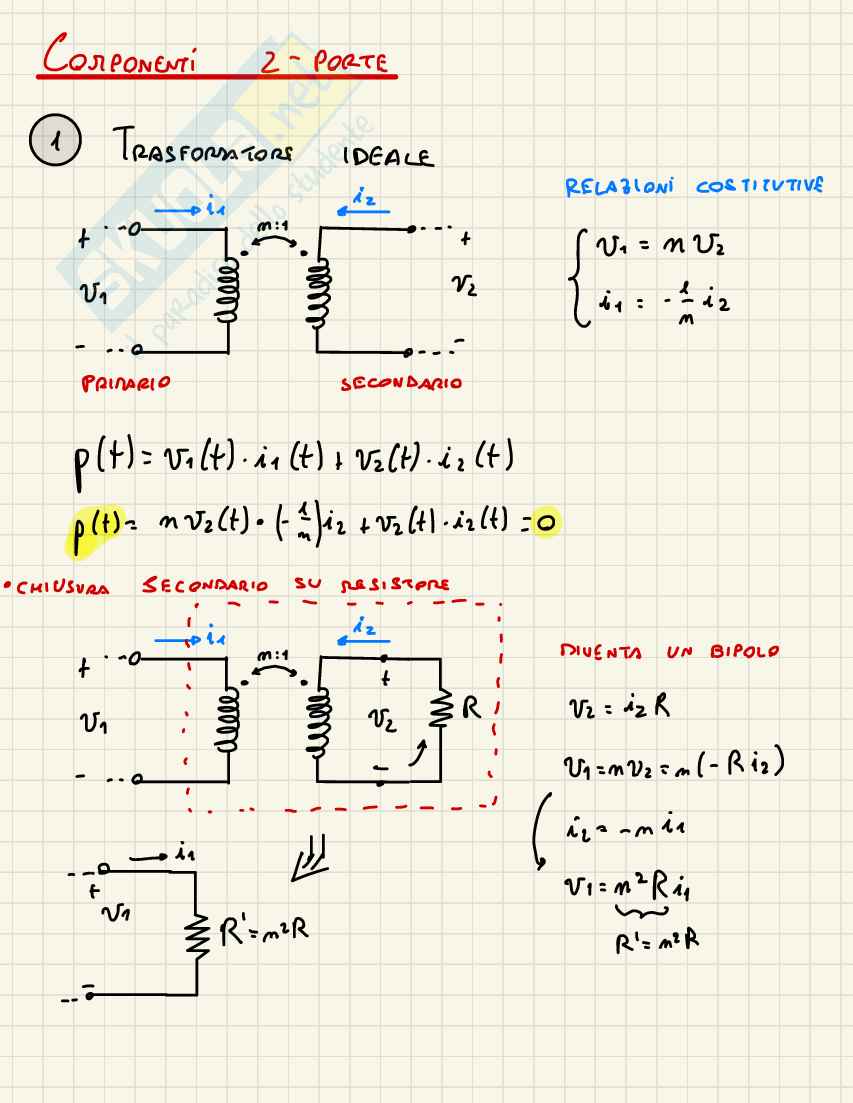 COMPONENTI 2-PORTE
1 TRASFORMATORE IDEALE
RELAZIONI COSTITUTIVE
i₁ n:1 i₂
+ +
v₁ v₂
- -
v₁ = n v₂
i₁ = -1/n i₂
PRIMARIO SECONDARIO
p(t) = v₁(t)·i₁(t) + v₂(t)·i₂(t)
p(t) = n v₂(t)·(-1/n)i₂ + v₂(t)·i₂(t) = 0
•CHIUSURA SECONDARIO SU RESISTORE
i₁ n:1 i₂
+ +
v₁ v₂ R
- -
DIVENTA UN BIPOLO
v₂ = i₂ R
v₁ = n v₂ = n(-R i₂)
i₂ = -n i₁
v₁ = n² R i₁
R' = n² R
i₁
+
v₁
R' = n² R
-
SKUOLA.net
il paradiso dello studente